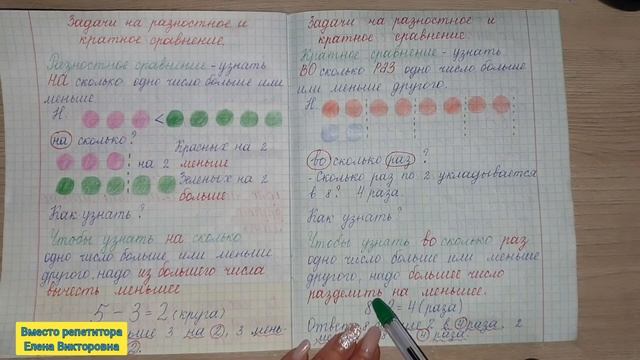 Задачи на разностное и
кратное сравнение.
Разностное сравнение - узнать
НА сколько одно число больше или
меньше
Н.
<
на сколько?
Красных на 2
на 2 меньше
Зеленых на 2
больше
Как узнать?
Чтобы узнать на сколько
одно число больше или меньше
другого, надо из большего числа
вычесть меньшее
5 - 3 = 2 (круга)
3 на 2, 3 мень-
Задачи на разностное и
кратное сравнение.
Кратное сравнение - узнать
ВО сколько РАЗ одно число больше
или меньше другого.
Н.
во сколько раз?
- Сколько раз по 2 укладывается
в 8? 4 раза.
Как узнать?
Чтобы узнать во сколько раз
одно число больше или меньше
другого, надо большее число
разделить на меньшее.
8 = 4 (раза)
2 в 4 раза, 2
4 раза.
Вместо репетитора
Елена Викторовна